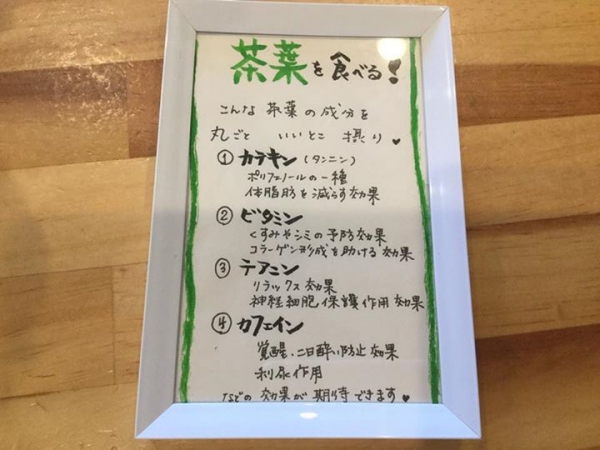 茶葉を食べる!
こんな茶葉の成分を
丸ごと いいとこ 摂り♥
① カテキン(タンニン)
ポリフェノールの一種
体脂肪を減らす効果
② ビタミン
くすみやシミの予防効果
コラーゲン形成を助ける効果
③ テアニン
リラックス効果
神経細胞保護作用効果
④ カフェイン
覚醒、二日酔い防止効果
利尿作用
などの効果が期待できます♥